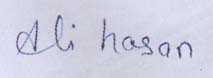 Ali hasan